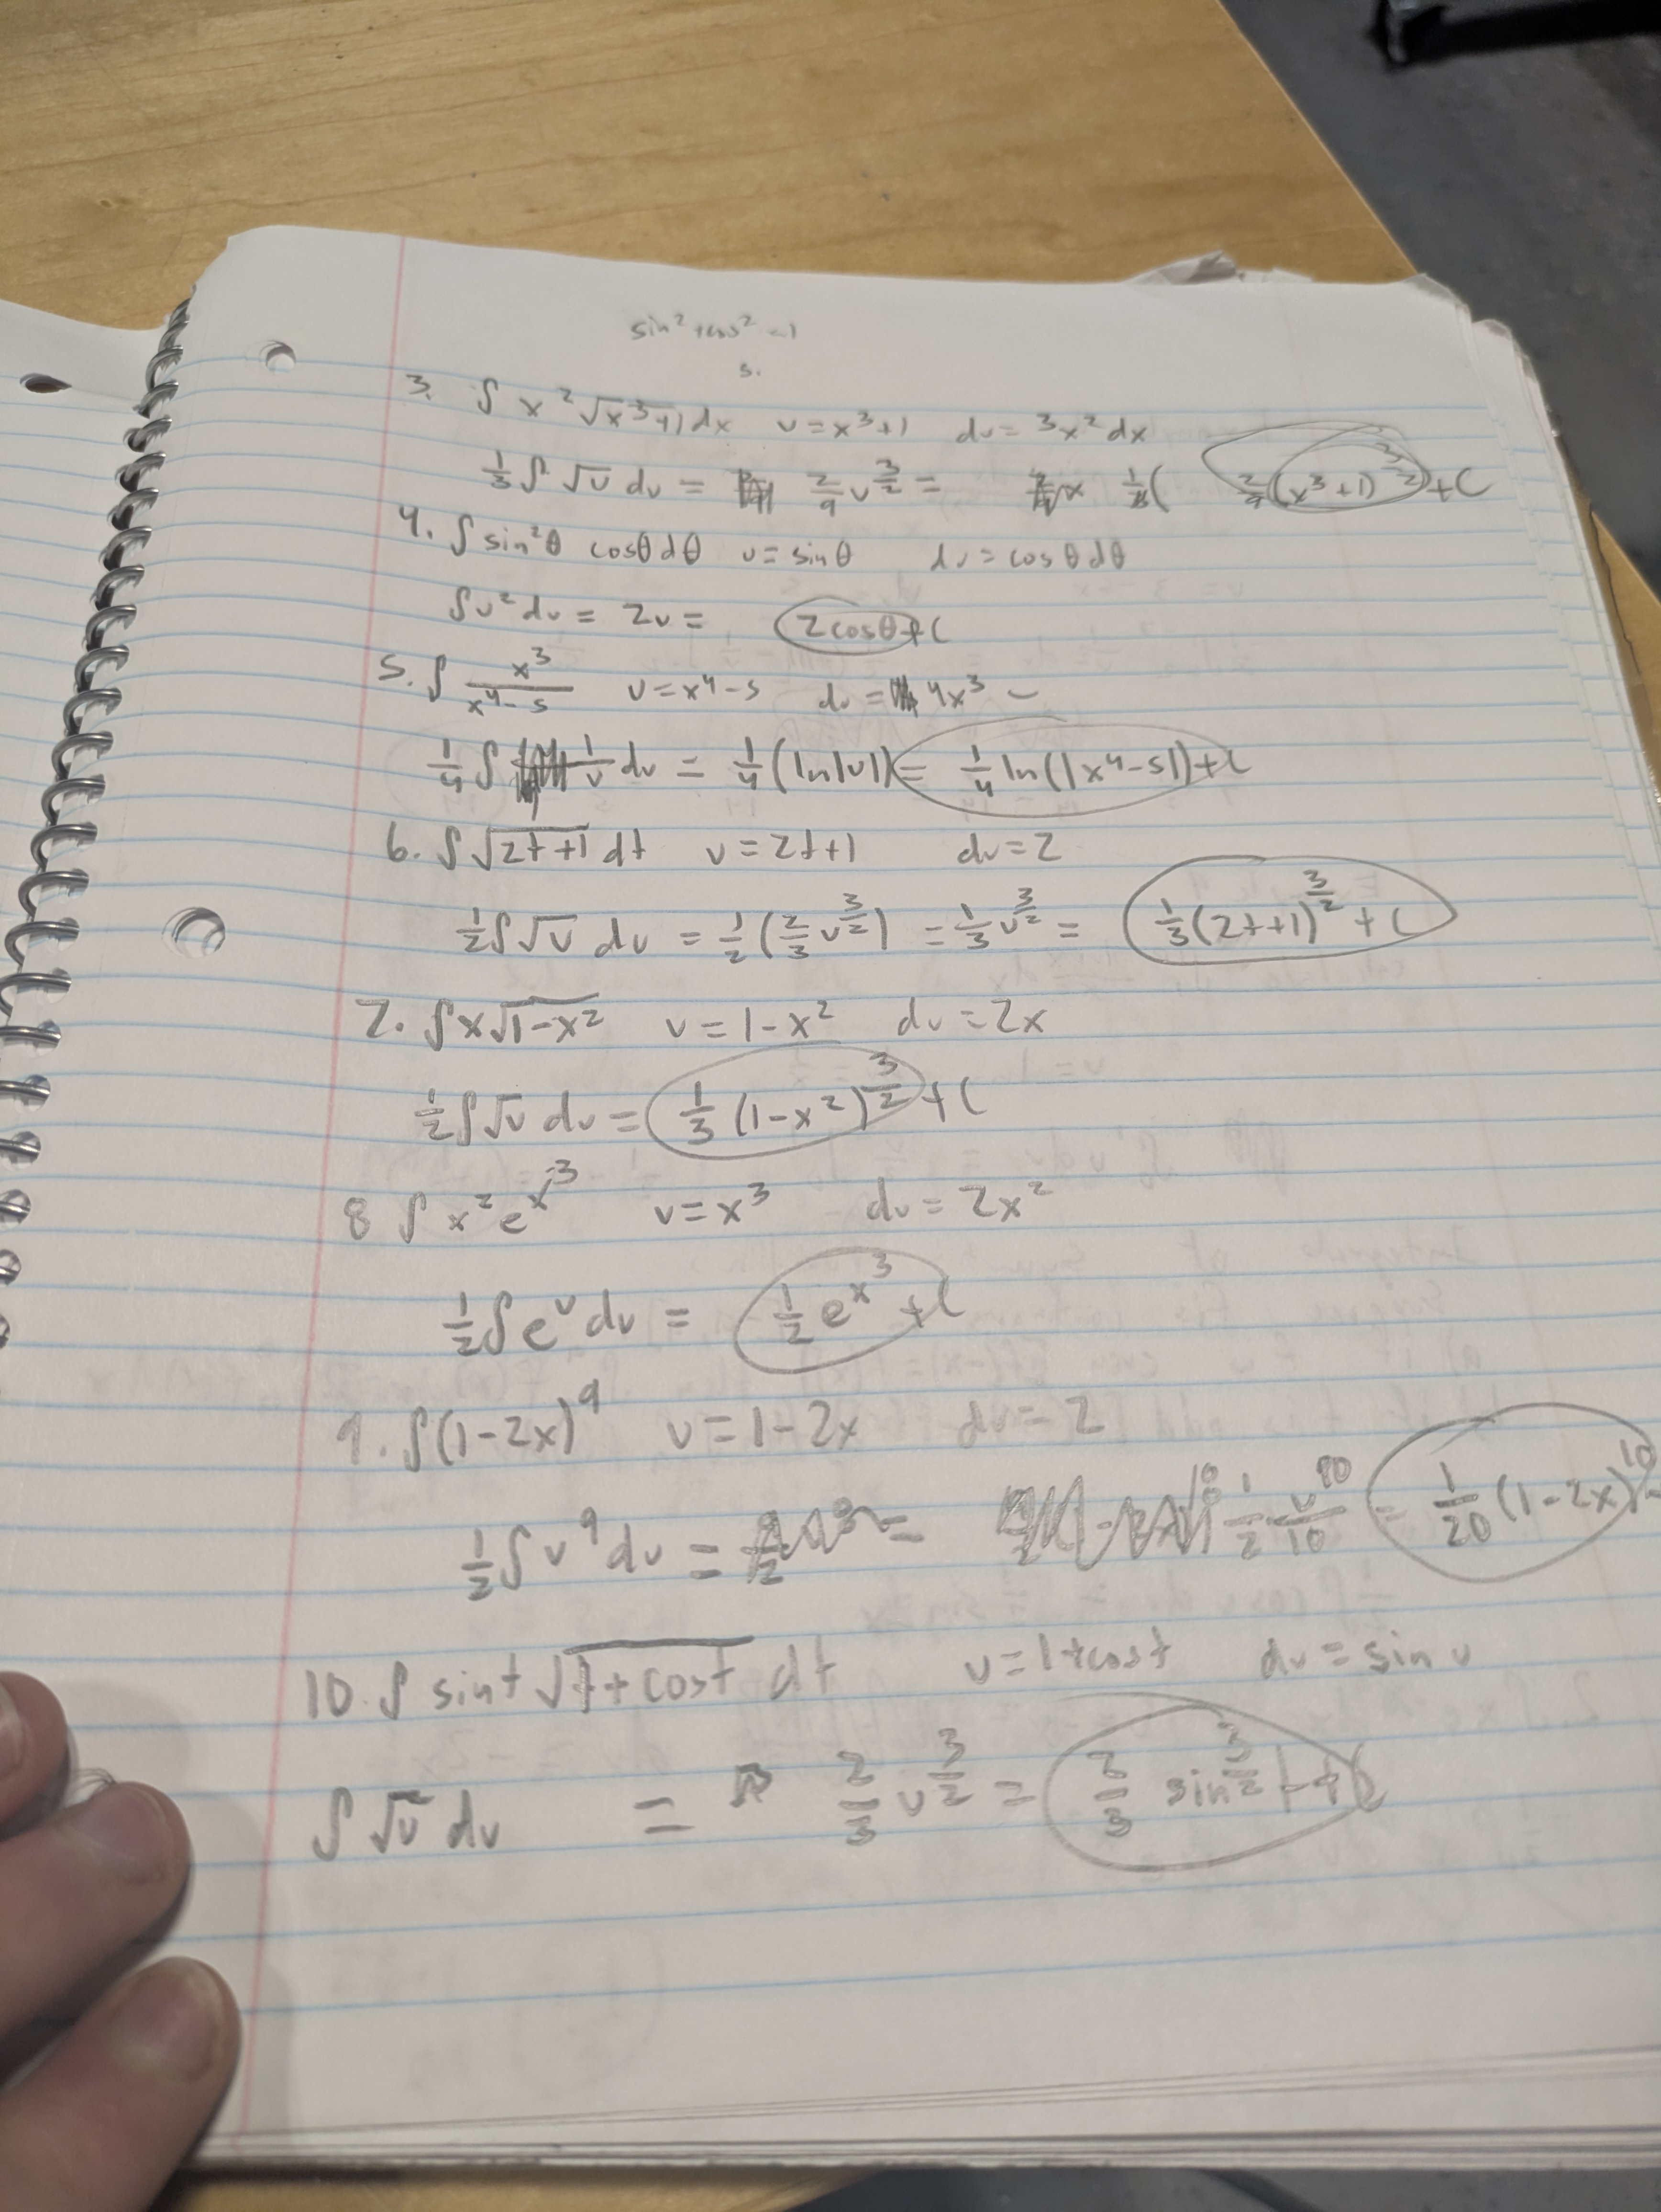 sin² + cos² = 1
s.
3. ∫ x² √(x³+1) dx u = x³+1 du = 3x² dx
1/3 ∫ √u du = 2/9 u^(3/2) = 1/3 ( 2/9 (x³+1)^(3/2) + C
4. ∫ sin²θ cosθ dθ u = sinθ du = cosθ dθ
∫ u² du = 2u = 2cosθ + C
5. ∫ x³/(x⁴-5) u = x⁴-5 du = 4x³
1/4 ∫ 1/u du = 1/4 (ln|u|) = 1/4 ln(|x⁴-5|) + C
6. ∫ √(2t+1) dt u = 2t+1 du = 2
1/2 ∫ √u du = 1/2 (2/3 u^(3/2)) = 1/3 u^(3/2) = 1/3 (2t+1)^(3/2) + C
7. ∫ x √(1-x²) u = 1-x² du = 2x
1/2 ∫ √u du = 1/3 (1-x²)^(3/2) + C
8 ∫ x² e^(x³) u = x³ du = 2x²
1/2 ∫ e^u du = 1/2 e^(x³) + C
9. ∫ (1-2x)⁹ u = 1-2x du = 2
1/2 ∫ u⁹ du = = 1/2 u^10/10 = 1/20 (1-2x)^10
10. ∫ sint √(1+cost) dt u = 1+cost du = sin u
∫ √u du = 2/3 u^(3/2) = 2/3 sin^(3/2) t + C